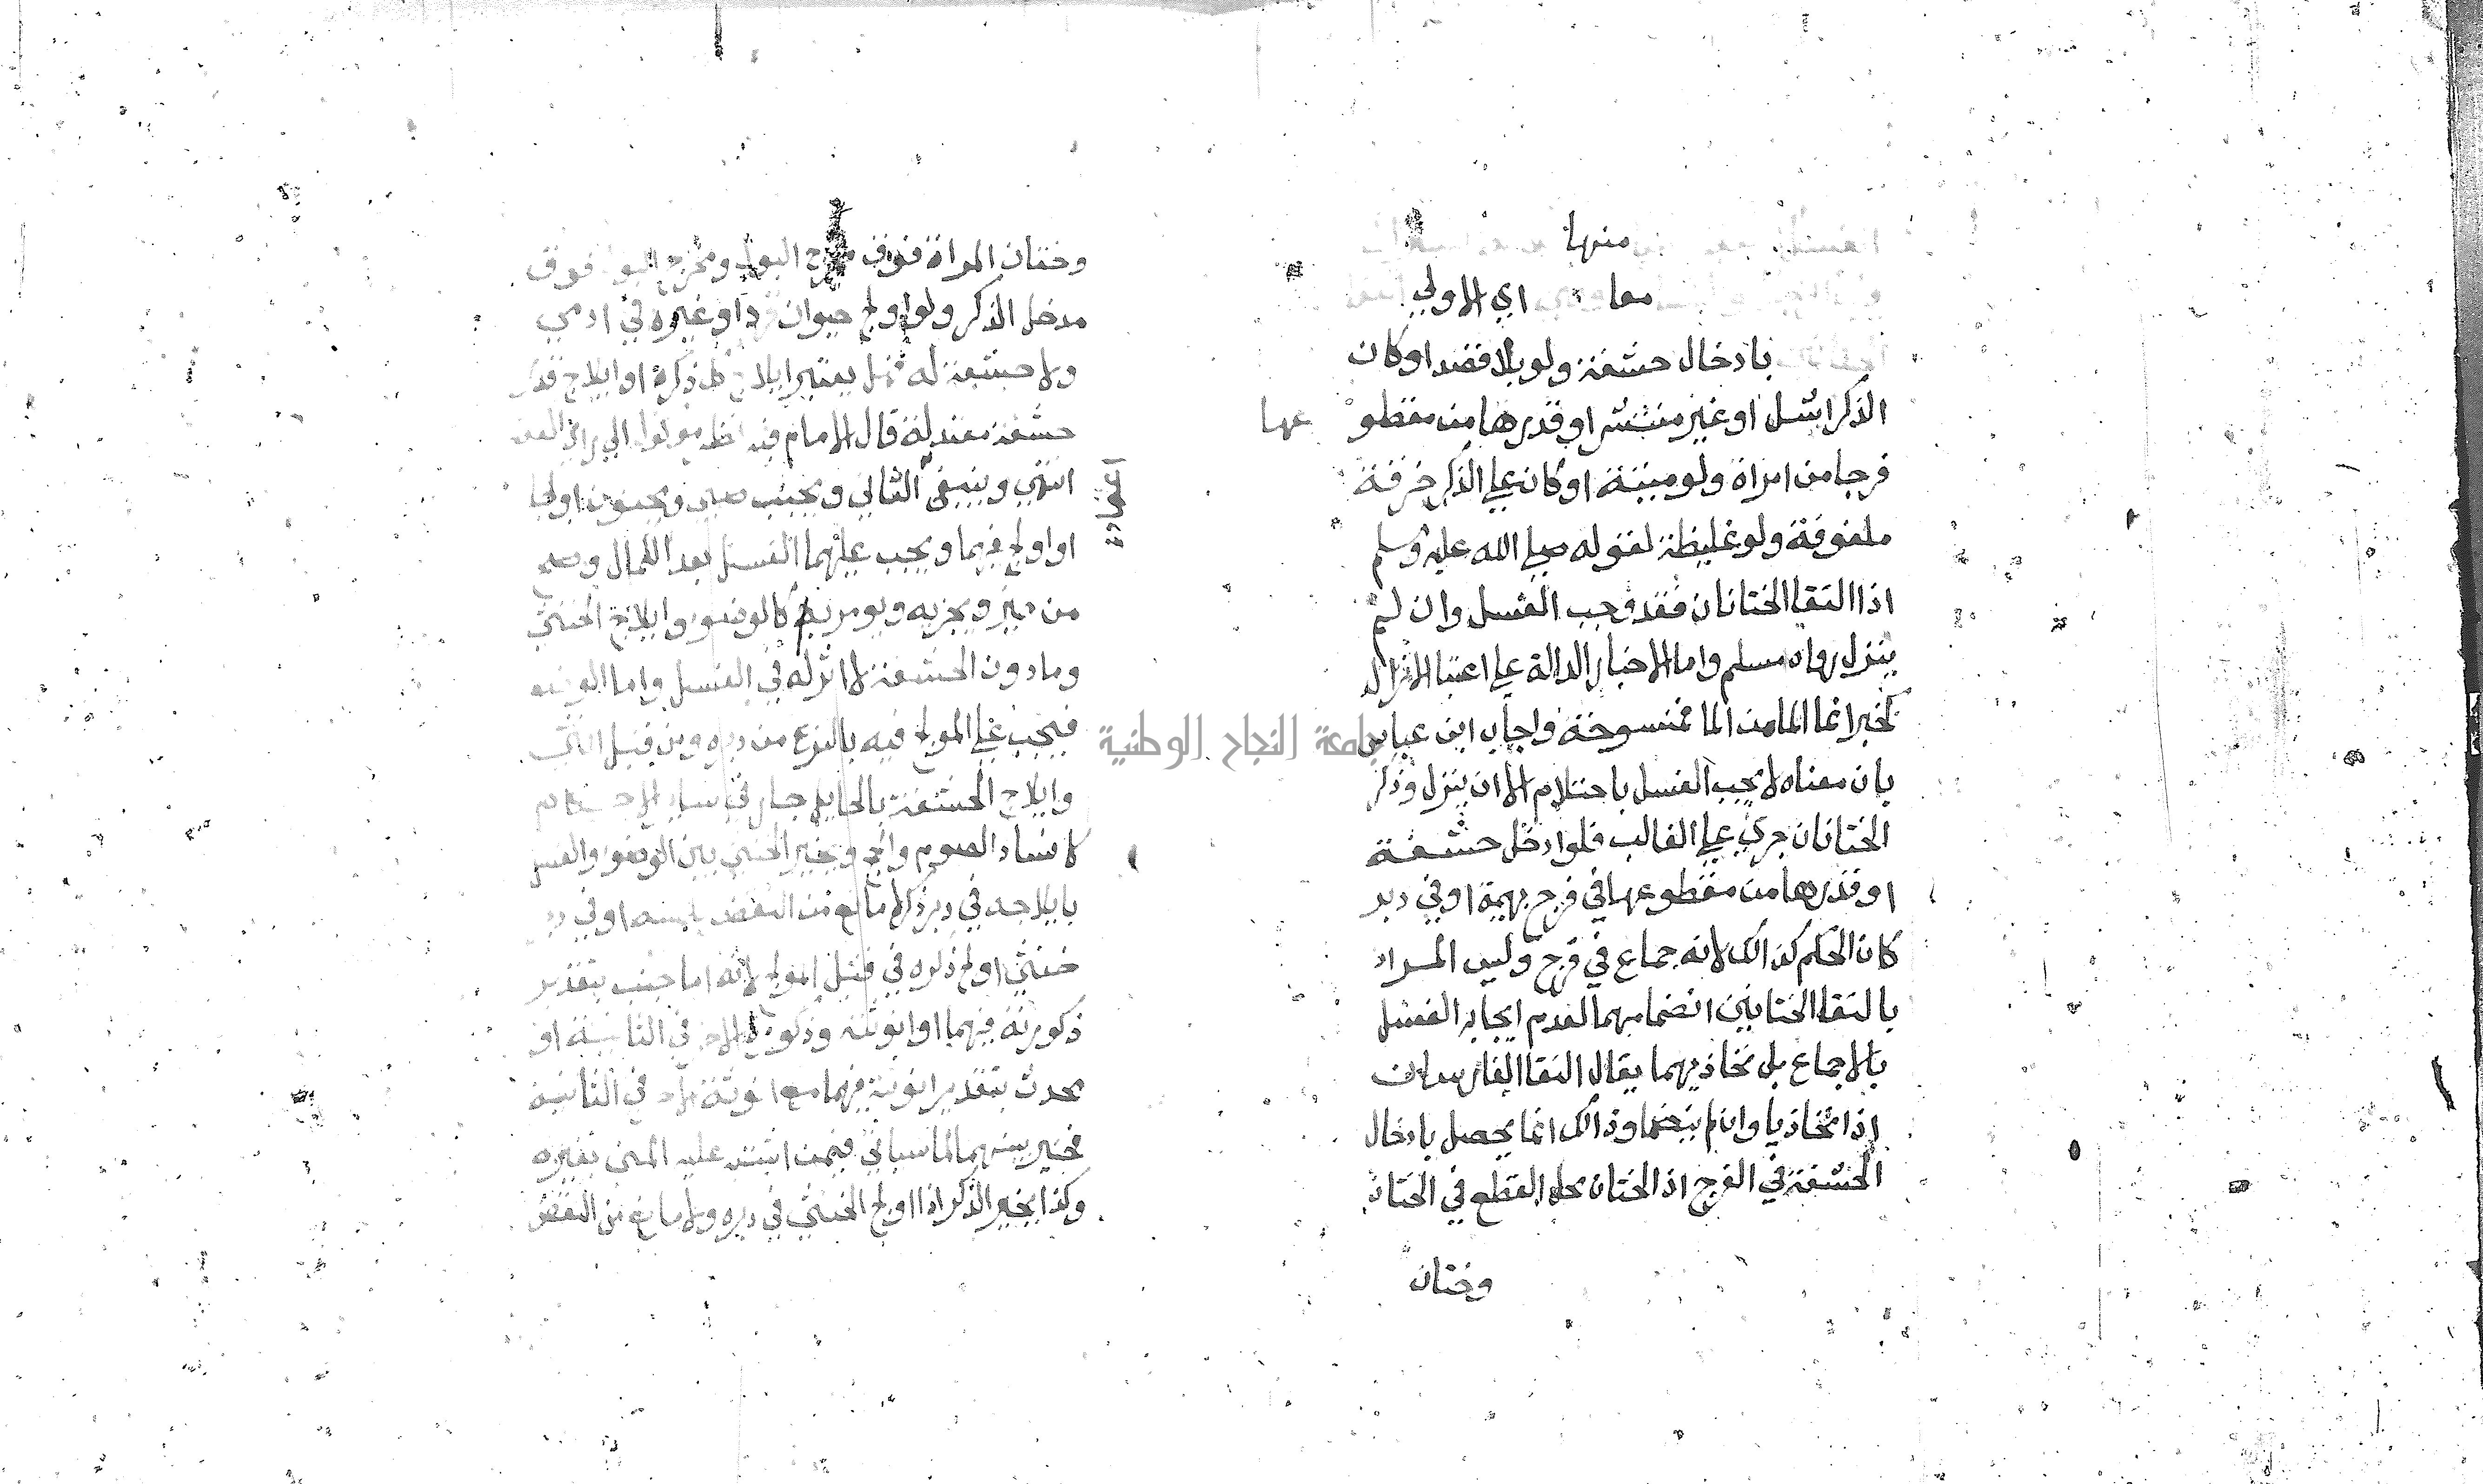 منها
معا اي الاولي
بادخال حشفة ولو بلا قصد او كان
الذكر اشل او غير منتشر او قدرها من مقطو
عها
فرجا من امراة ولو ميتة او كان علي الذكر خرقة
ملفوفة ولو غليظة لقوله صلي الله عليه وسلم
اذا التقا الختانان فقد وجب الغسل وان لم
ينزل رواه مسلم واما الاخبار الدالة علي اعتبا الانزال
كخبر انما الما من الما فمنسوخة واجاب ابن عباس
بان معناه لا يجب الغسل باحتلام الا ان ينزل وذكر
الختانان جري علي الغالب فلو ادخل حشفة
او قدرها من مقطوعها في فرج بهيمة او في دبر
كان الحكم كذالك لانه جماع في فرج وليس المراد
بالتقا الختانين انضمامهما لعدم ايجابه الغسل
بالاجماع بل تحاذيهما يقال التقا الفارسان
اذا تحاذيا وان لم ينضما وذالك انما يحصل بادخال
الحشفة في الفرج اذ الختان محل القطع في الختان
وختان
وختان المراة فوق مخرج البول ومخرج البول فوق
مدخل الذكر ولو اولج حيوان قردا او غيره في ادمي
ولا حشفة له فهل يعتبر ايلاج كل ذكره او ايلاج قدر
حشفة معتدلة قال الامام فيه نظر موكول الي راي الفقيه
انتهي وينبغي الثاني ويجنب صبي ومجنون اولجا
او اولج فيهما ويجب عليهما الغسل بعد الكمال وصح
من مميز ويجزيه ويومر به كالوضوء وايلاج الخنثي
وما دون الحشفة لا اثر له في الغسل واما الوضو
فيجب علي المولج فيه بالنزع من دبره ومن قبل انثي
وايلاج الحشفة بالحايل جار في ساير الاحكام
كافساد الصوم والحج ويخير الخنثي بين الوضوء والغسل
بايلاجه في دبر ذكر لا مانع من النقض بلمسه او في دبر
خنثي اولج ذكره في قبل المولج لانه اما جنب بتقدير
ذكورته فيهما او انوثته وذكورة الاخر في الثانية او
محدث بتقدير انوثته فيهما مع انوثة الاخر في الثانية
فخير بينهما لما سياتي فيمن اشتبه عليه المني بغيره
وكذا يخير الذكر اذا اولج الخنثي في دبره ولا مانع من النقض
جامعة النجاح الوطنية